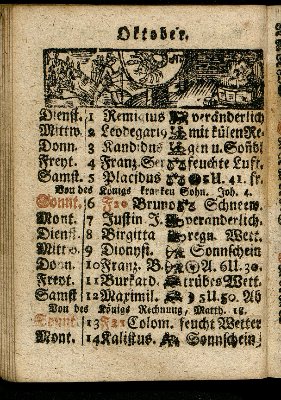 Oktober.
Dienst. 1 Remigius veränderlich
Mittw. 2 Leodegari9 mit külen Re-
Donn. 3 Kandidus gen u. Soñbl
Freyt. 4 Franz Ser feuchte Luft.
Samst. 5 Placidus 5 U. 41. fr.
Von des Königs kranken Sohn. Joh. 4.
Sonnt. 6 F20 Bruno Schneew.
Mont. 7 Justin J. veranderlich.
Dienst. 8 Birgitta regn. Wett.
Mittw. 9 Dionysi. Sonnschein
Donn. 10 Franz. B A. 6U. 30.
Freyt. 11 Burkard. trübes Wett.
Samst 12 Maximil. 5 U. 50. Ab
Von des Königs Rechnung, Matth. 18.
Sonnt. 13 F21 Colom. feucht Wetter
Mont. 14 Kalistus. Sonnschein